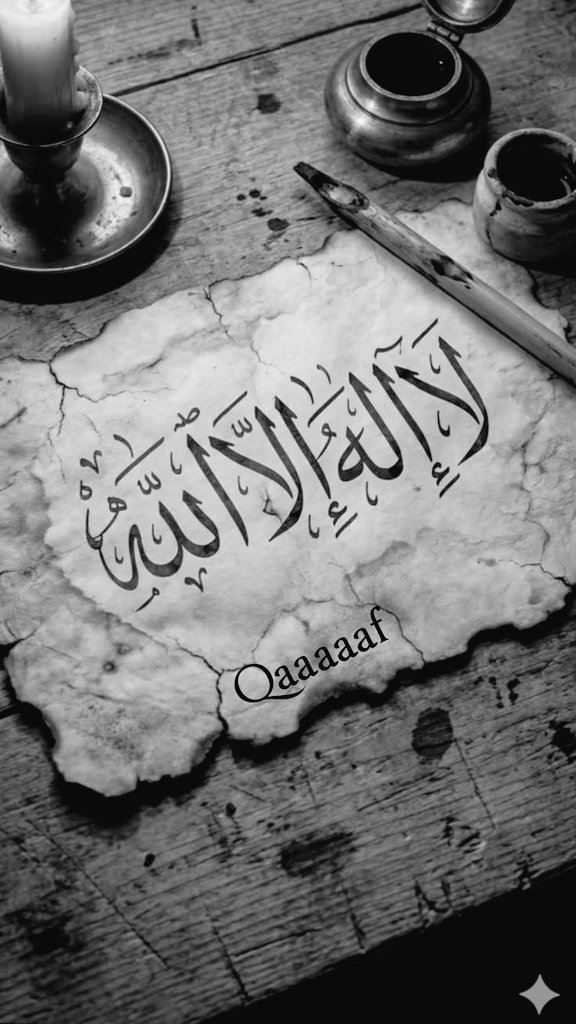 لَا إِلٰهَ إِلَّا اللّٰه
Qaaaaaf